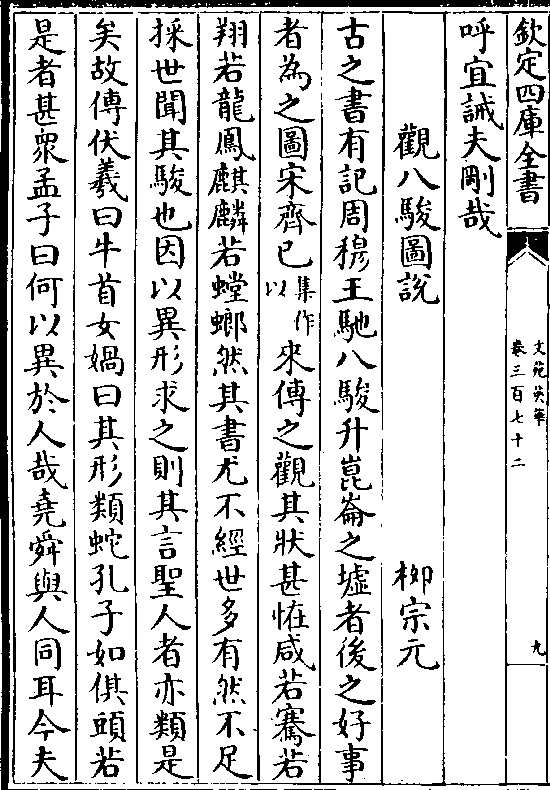 欽定四庫全書
文苑英華
卷三百七十二
九
呼宜誡夫剛哉
觀八駿圖說 柳宗元
古之書有記周穆王馳八駿升崑崙之墟者後之好事
者為之圖宋齊已集作以來傳之觀其狀甚恠咸若騫若
翔若龍鳳麒麟若螳螂然其書尤不經世多有然不足
採世聞其駿也因以異形求之則其言聖人者亦類是
矣故傳伏羲曰牛首女媧曰其形類蛇孔子如倛頭若
是者甚衆孟子曰何以異於人哉堯舜與人同耳今夫